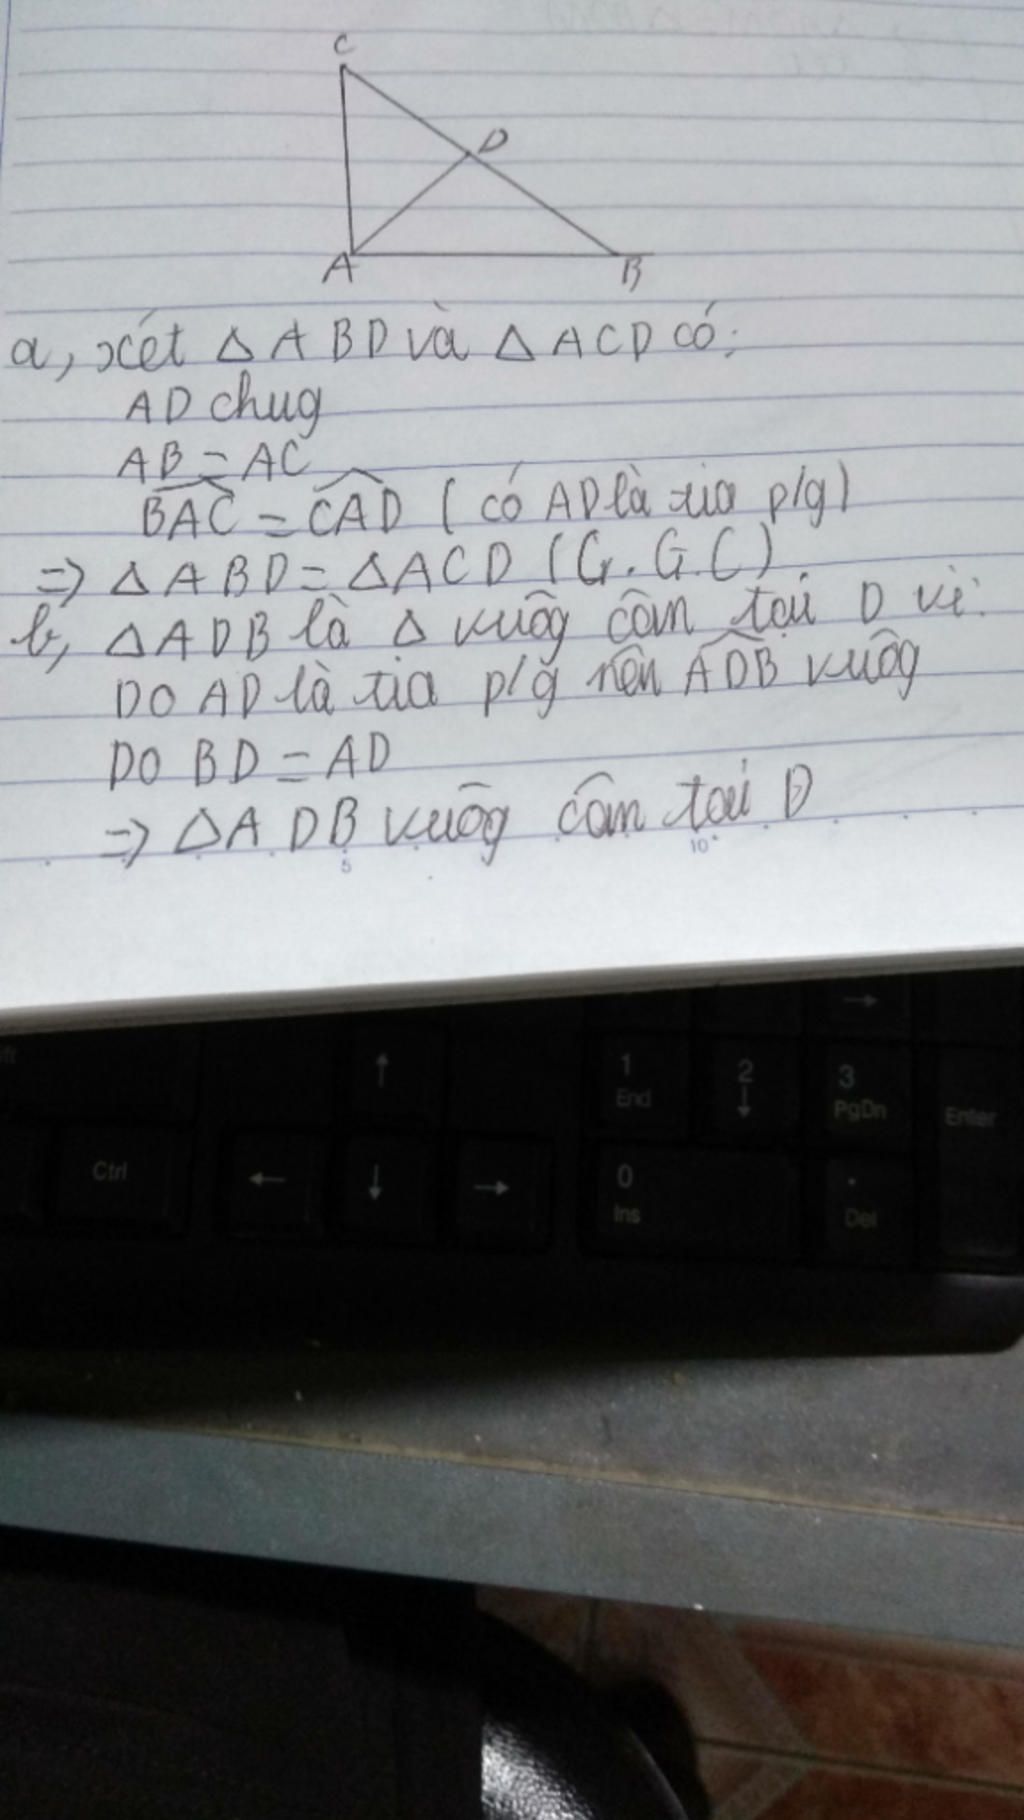 C
D
A
B
a, xét Δ ABD và Δ ACD có:
AD chug
AB = AC
BAC = CAD ( có AD là tia p/g )
=> Δ ABD = Δ ACD (G.G.C)
b, Δ ADB là Δ vuôg cân tại D vì:
DO AD là tia p/g nên ADB vuôg
DO BD = AD
=> Δ ADB vuôg cân tại D
5 10
→
↑ 1 End 2 ↓ 3 PgDn Enter
Ctrl ← ↓ → 0 Ins . Del